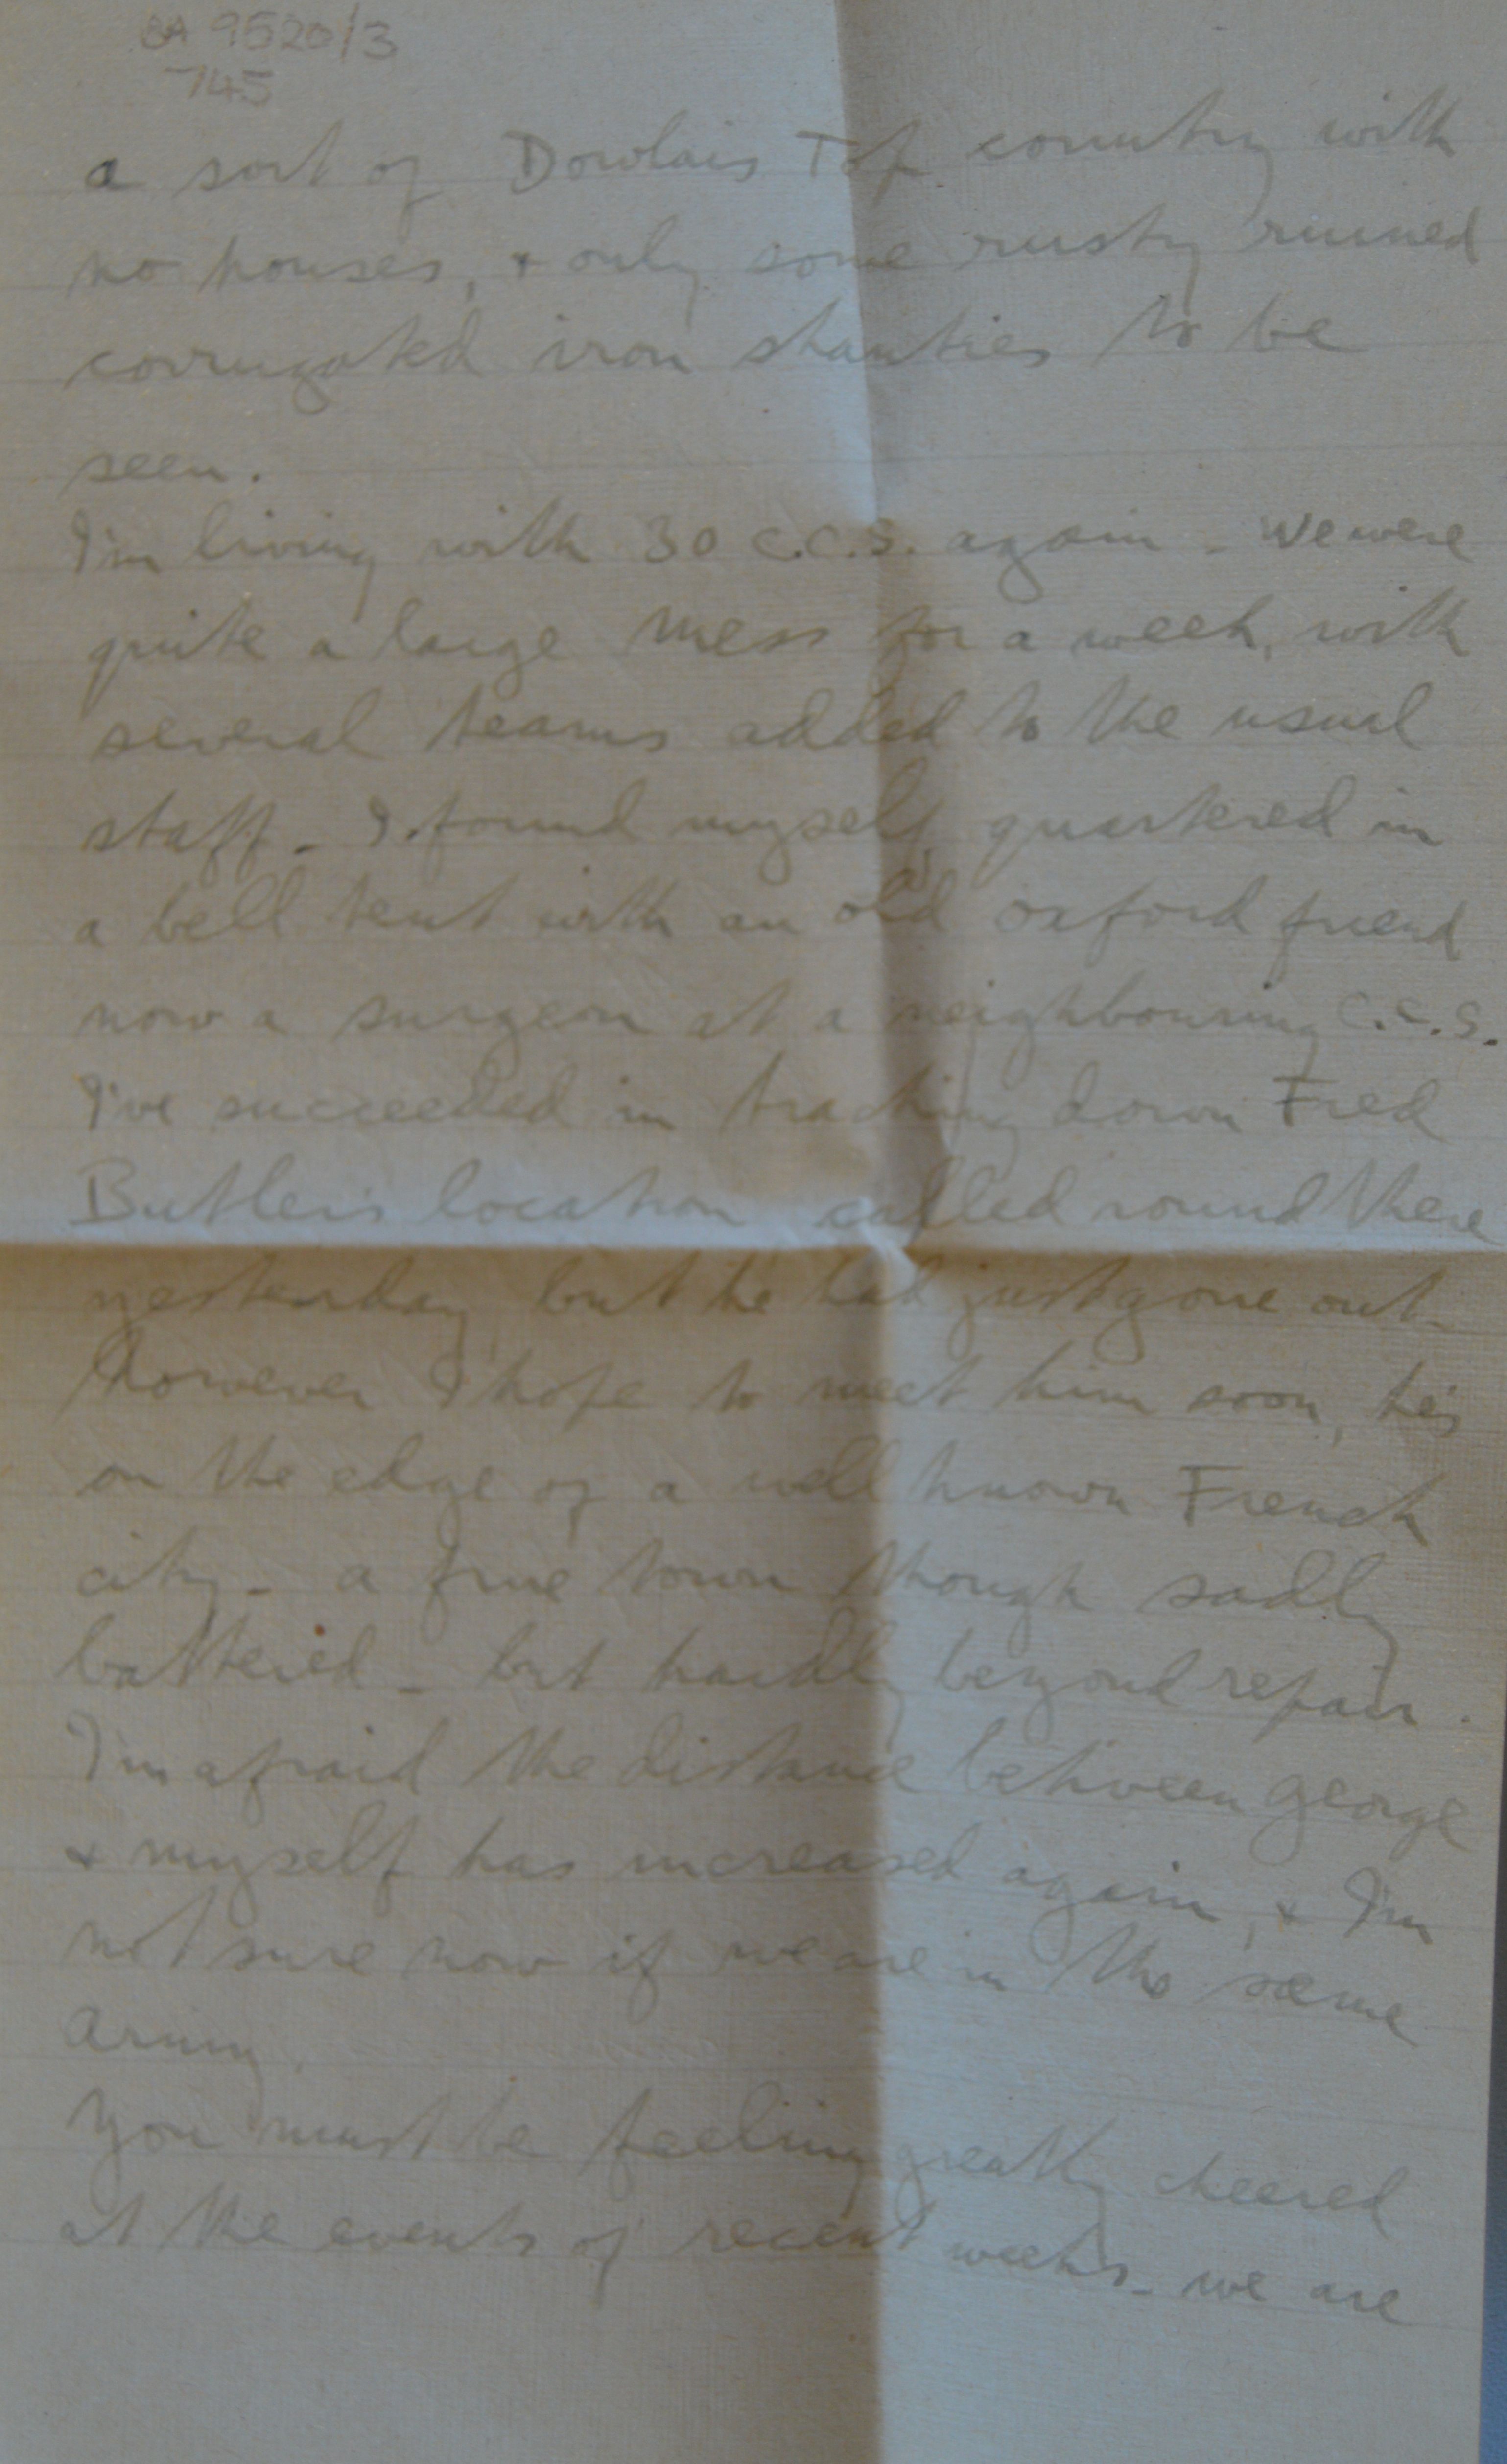 BA 9520/3
745
a sort of Dowlais Top country with
no houses, & only some rusty ruined
corrugated iron shanties to be
seen.
I'm living with 30 C.C.S. again - We were
quite a large mess for a week, with
several teams added to the usual
staff - I found myself quartered in
a bell tent with an old Oxford friend
now a surgeon at a neighbouring C.C.S.
I've succeeded in tracking down Fred
Butler's location called round there
yesterday but he had just gone out -
However I hope to meet him soon, he's
on the edge of a well known French
city - a fine town though sadly
battered - but hardly beyond repair.
I'm afraid the distance between George
& myself has increased again, & I'm
not sure now if we are in the same
Army.
You must be feeling greatly cheered
at the events of recent weeks - we are